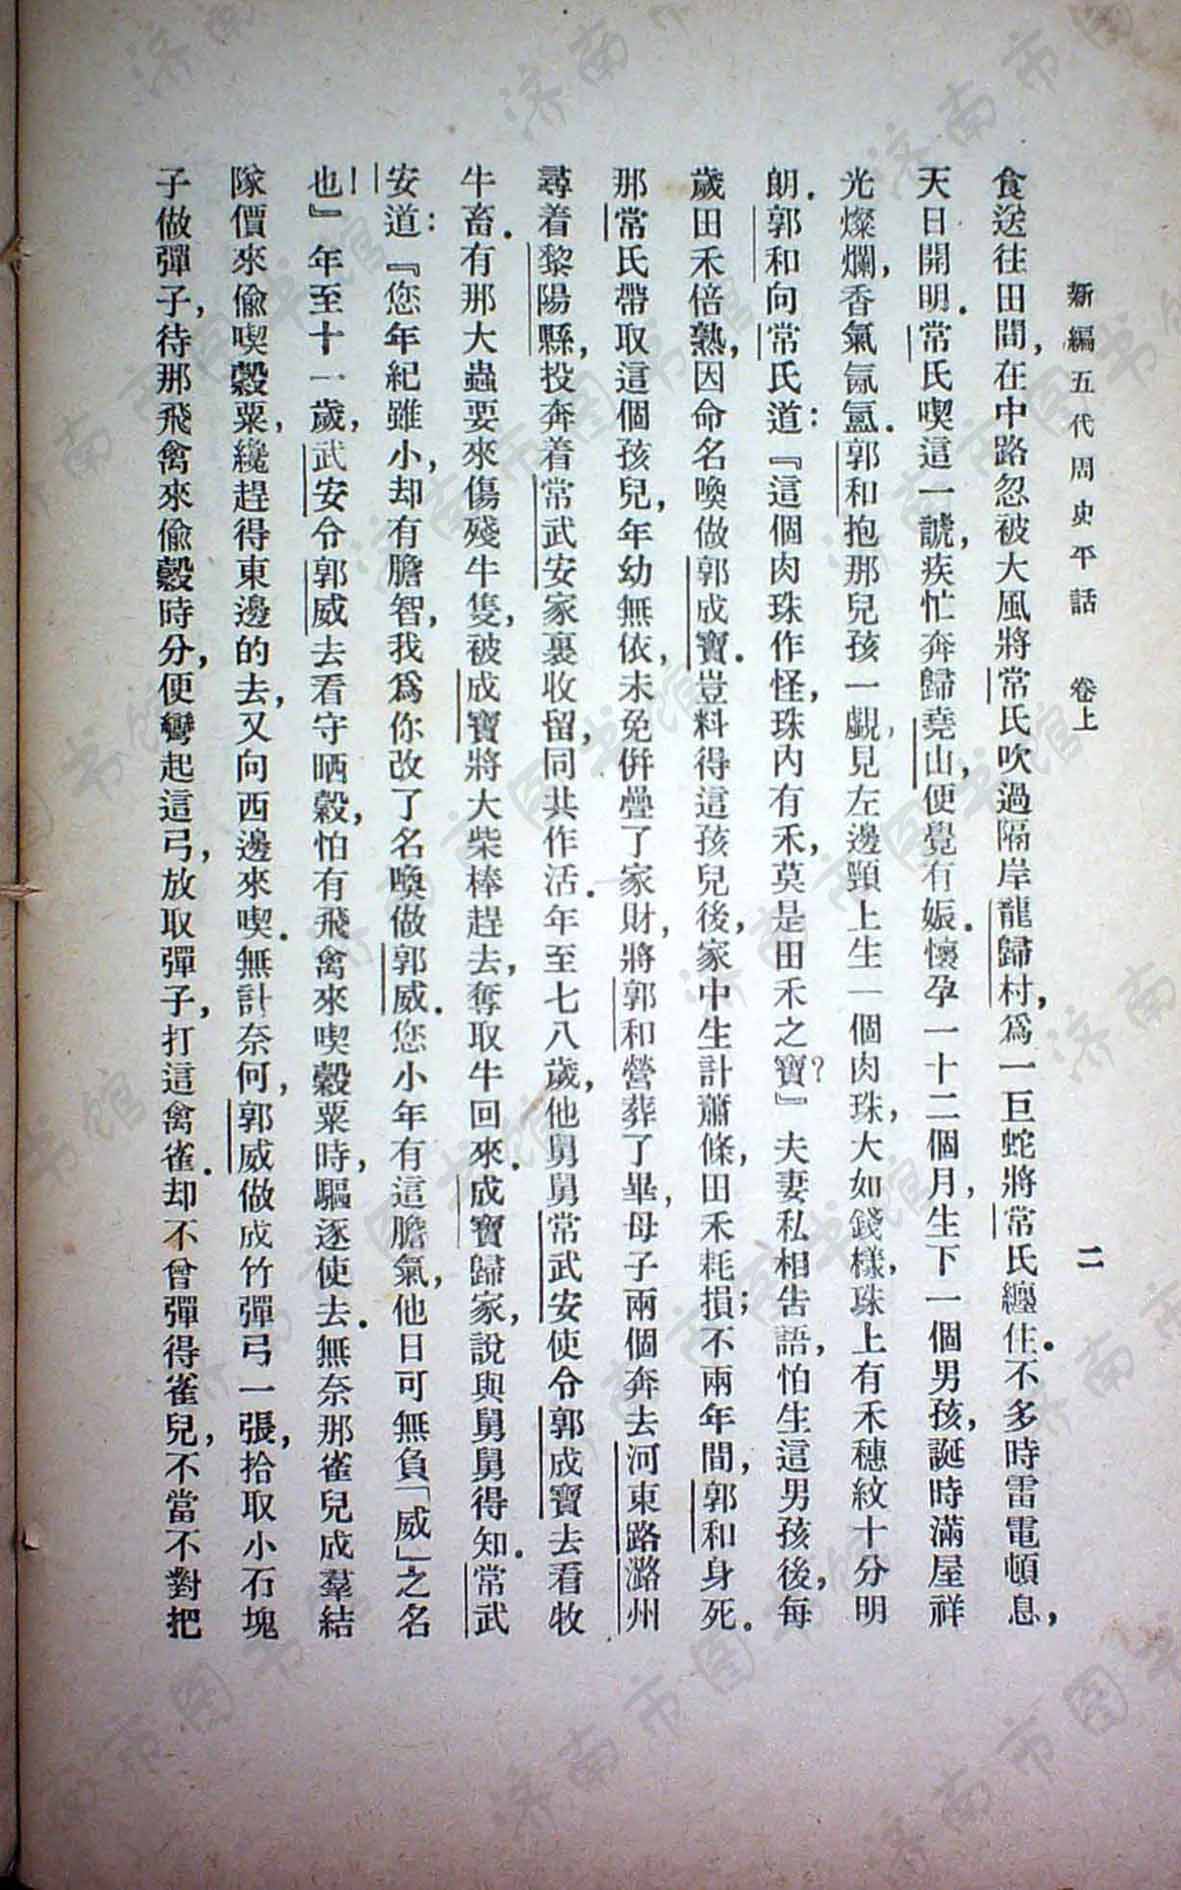 新編五代周史平話 卷上 二
食送往田間，在中路忽被大風將常氏吹過隔岸龍歸村，爲一巨蛇將常氏纏住．不多時雷電頓息，
天日開明．常氏喫這一諕，疾忙奔歸堯山，便覺有娠．懷孕一十二個月，生下一個男孩，誕時滿屋祥
光燦爛，香氣氤氳．郭和抱那兒孩一覷，見左邊頸上生一個肉珠，大如錢樣，珠上有禾穗紋十分明
朗．郭和向常氏道：『這個肉珠作怪，珠內有禾，莫是田禾之寶？』夫妻私相告語，怕生這男孩後，每
歲田禾倍熟，因命名喚做郭成寶．豈料得這孩兒後，家中生計蕭條，田禾耗損；不兩年間，郭和身死．
那常氏帶取這個孩兒，年幼無依，未免併疊了家財，將郭和營葬了畢，母子兩個奔去河東路潞州
尋着黎陽縣，投奔着常武安家裏收留，同共作活．年至七八歲，他舅舅常武安使令郭成寶去看牧
牛畜．有那大蟲要來傷殘牛隻，被成寶將大柴棒趕去，奪取牛回來．成寶歸家，說與舅舅得知．常武
安道：『您年紀雖小，却有膽智，我爲你改了名喚做郭威．您小年有這膽氣，他日可無負「威」之名
也！』年至十一歲，武安令郭威去看守晒穀，怕有飛禽來喫穀粟時，驅逐使去．無奈那雀兒成羣結
隊價來偷喫穀粟，纔趕得東邊的去，又向西邊來喫．無計奈何，郭威做成竹彈弓一張，拾取小石塊
子做彈子，待那飛禽來偷穀時分，便彎起這弓，放取彈子，打這禽雀．却不曾彈得雀兒，不當不對把
济南市图书馆